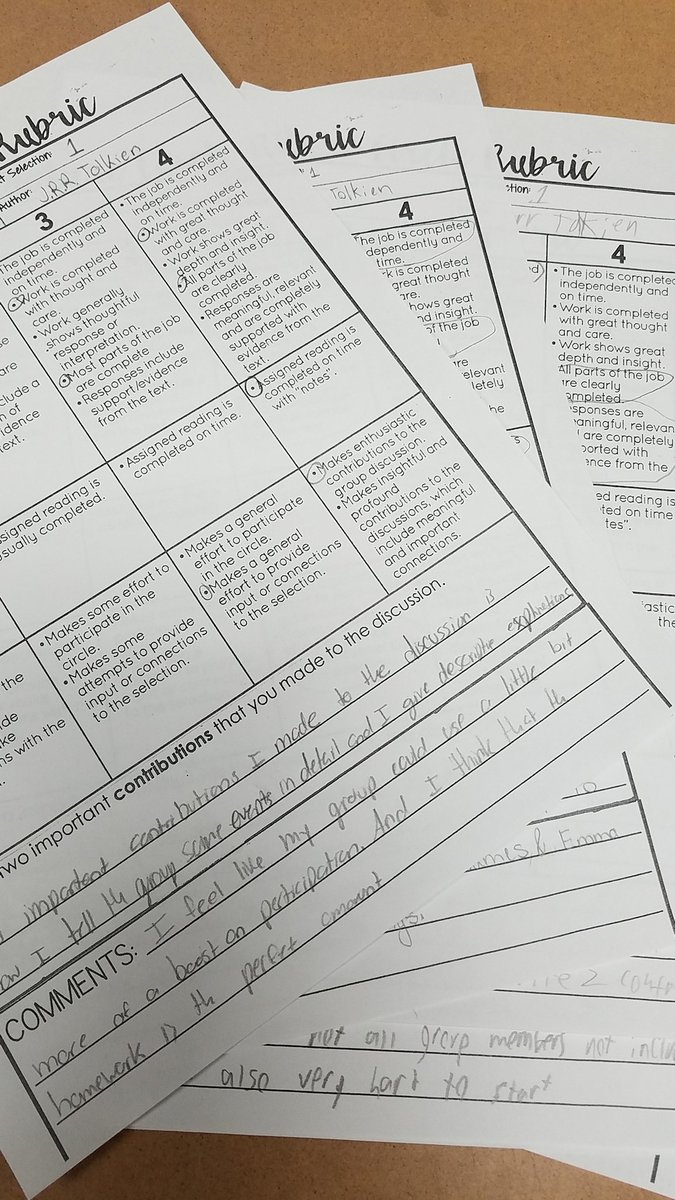 Rubric
Selection: 1
Author: J.R.R. Tolkien
3
4
The job is completed
independently and
on time.
Work is completed
with thought and
care.
• Work generally
shows thoughtful
response or
interpretation.
Most parts of the job
are complete
• Responses include
support/evidence
from the text.
• The job is completed
independently and
on time.
Work is completed
with great thought
and care.
• Work shows great
depth and insight.
All parts of the job
are clearly
completed.
• Responses are
meaningful, relevant
and are completely
supported with
evidence from the
text.
usually completed.
• Assigned reading is
completed on time.
Assigned reading is
completed on time
with "notes".
• Makes some effort to
participate in the
circle.
• Makes some
attempts to provide
input or connections
to the selection.
• Makes a general
effort to participate
in the circle.
• Makes a general
effort to provide
input or connections
to the selection.
• Makes enthusiastic
contributions to the
group discussion.
• Makes insightful and
profound
contributions to the
discussions, which
include meaningful
and important
connections.
two important contributions that you made to the discussion.
important contributions I made to the discussion is
how I tell th group some events in detail and I give descriptive explanations
COMMENTS: I feel like my group could use a little bit
more of a boost on participation. And I think that th
homework is th perfect amount
Rubric
1
Tolkien
4
The job is completed
dependently and
time.
is completed
great thought
hows great
nd insight.
of the job
are
elevant
letely
the
& Emma
Rubric
1
Tolkien
4
• The job is completed
independently and
on time.
• Work is completed
with great thought
and care.
• Work shows great
depth and insight.
All parts of the job
are clearly
completed.
sponses are
meaningful, relevan
are completely
ported with
ence from the
ed reading is
ted on time
tes".
astic
the
2
not all group members not
also very hart to start